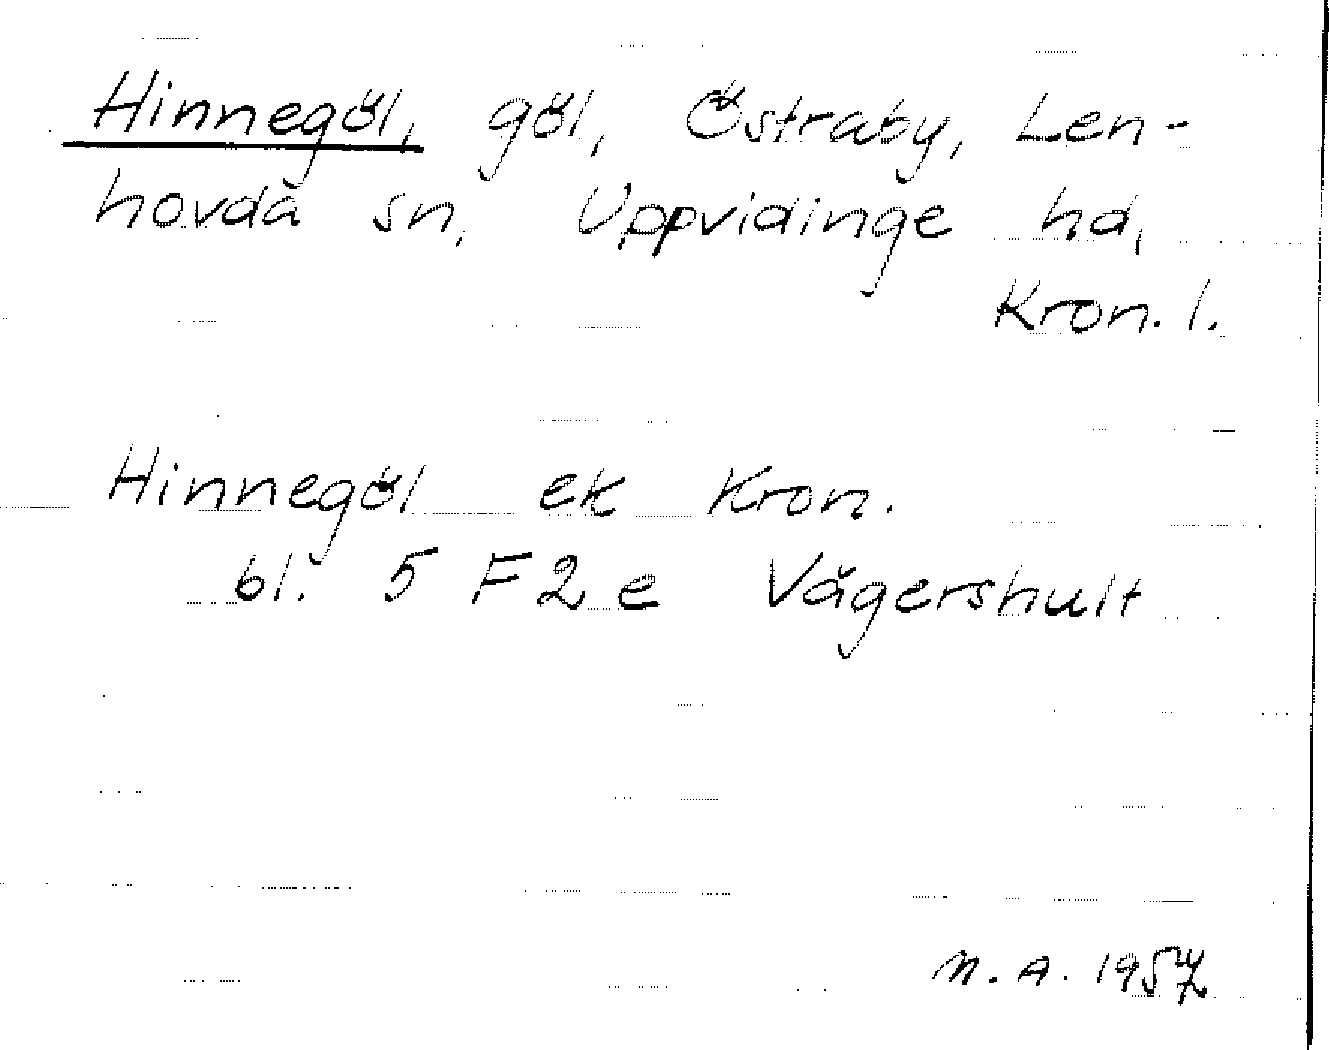 Hinnegöl, göl, Östraby, Len-
hovda sn, Uppvidinge hd,
Kron. l.
Hinnegöl ek Kron.
bl. 5 F 2 e Vägershult
N. A. 1957